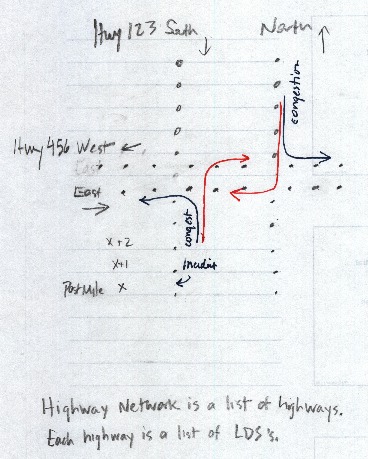 Hwy 123 South
North
congestion
Hwy 456 West
East
East
congest
x+2
x+1
Incident
Post Mile x
Highway Network is a list of highways.
Each highway is a list of LDS's.